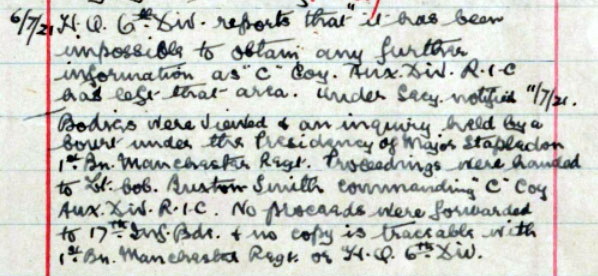 6/7/21 H.Q. 6th Div. reports that "it has been
impossible to obtain any further
information as "C" Coy. Aux. Div. R.I.C
has left that area. Under Secy. notified 11/7/21.
Bodies were viewed & an inquiry held by a
Court under the Presidency of Major Stapledon
1st Bn. Manchester Regt. Proceedings were handed
to Lt. Col. Buxton Smith commanding "C" Coy
Aux. Div. R.I.C. No proceeds were forwarded
to 17th Inf. Bde. & no copy is traceable with
1st Bn. Manchester Regt. or H.Q. 6th Div.